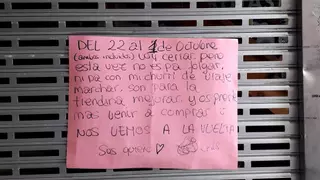 DEL 22 al 1 de Octubre
(ambos incluidos) voy cerrar pero
esta vez no es pa jugar,
ni pa con mi churri de viaje
marchar, son para la
trendina mejorar y os preste
más venir a comprar
NOS VEMOS A LA VUELTA